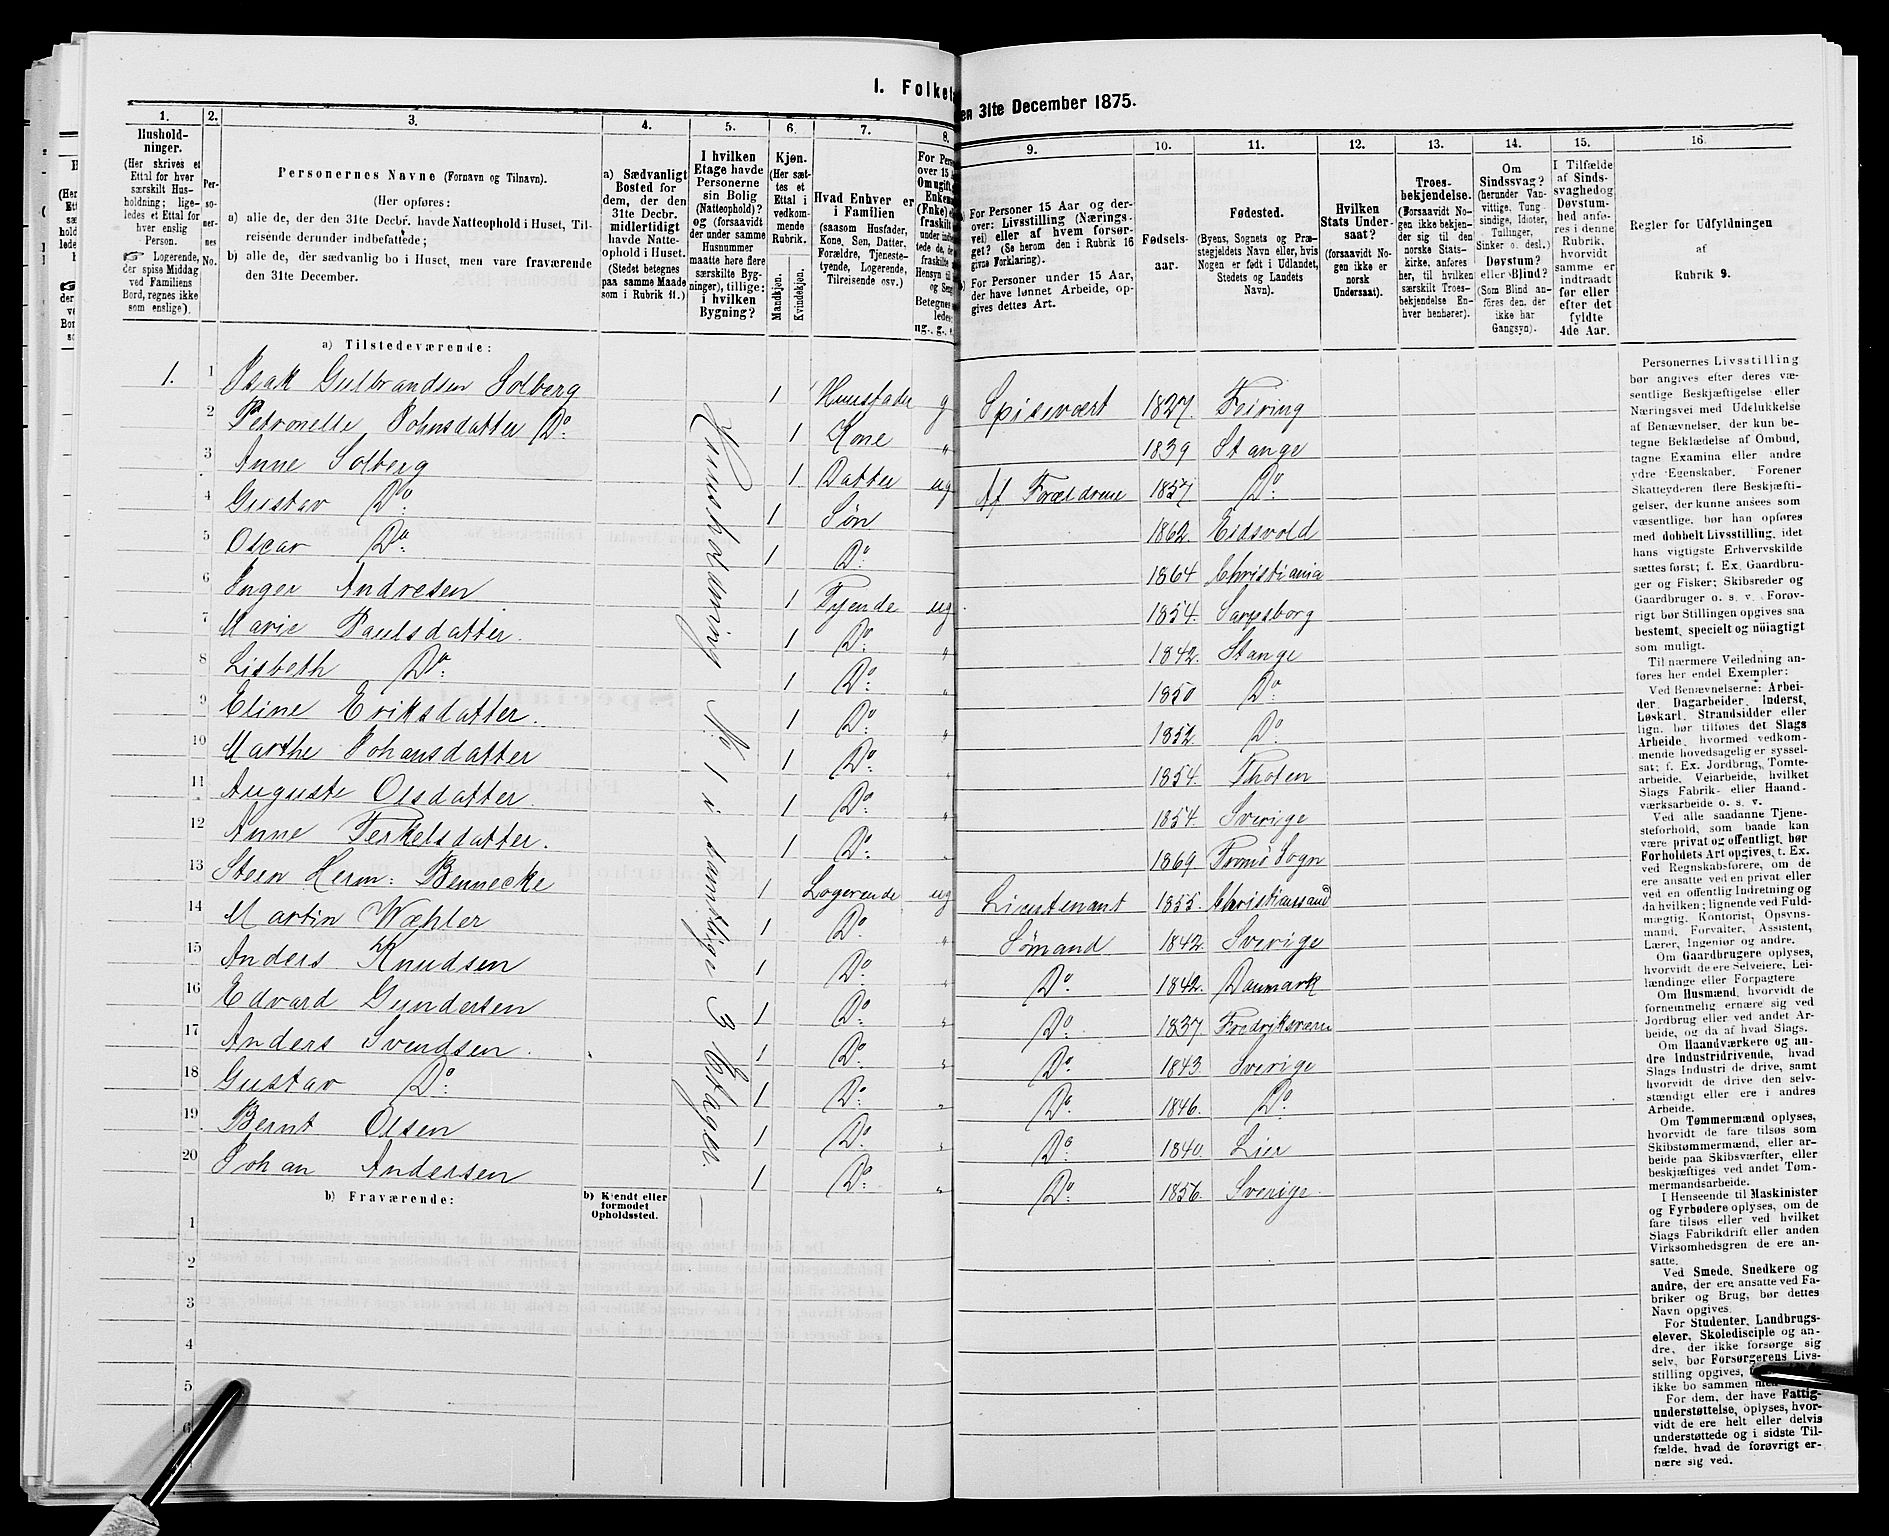 I. Folket
en 31te December 1875.
1. 2. 3. 4. 5. 6. 7. 8. 9. 10. 11. 12. 13. 14. 15. 16.
Hushold-
ninger.
(Her skrives et
Ettal for hver
særskilt Hus-
holdning; lige-
ledes et Ettal for
hver enslig
Person.
☞ Logerende,
der spise Middag
ved Familiens
Bord, regnes ikke
som enslige).
Per-
so-
ner-
nes
No.
Personernes Navne (Fornavn og Tilnavn).
(Her opføres:
a) alle de, der den 31te Decbr. havde Natteophold i Huset, Til-
reisende derunder indbefattede;
b) alle de, der sædvanlig bo i Huset, men vare fraværende
den 31te December.
a) Sædvanligt
Bosted for
dem, der den
31te Decbr.
midlertidigt
havde Natte-
ophold i Huset.
(Stedet betegnes
paa samme Maade
som i Rubrik 11.)
I hvilken
Etage havde
Personerne
sin Bolig
(Natteophold)?
og (forsaavidt
der under samme
Husnummer
maatte høre flere
særskilte Byg-
ninger), tillige:
i hvilken
Bygning?
Kjøn.
(Her sæt-
tes et
Ettal i
vedkom-
mende
Rubrik.
Mandkjøn.
Kvindekjøn.
Hvad Enhver er
i Familien
(saasom Husfader,
Kone, Søn, Datter,
Forældre, Tjeneste-
tyende, Logerende,
Tilreisende osv.)
For Pers
over 15 A
Om ugift,
Enkem
(Enke) e
fraskilt
Betegnes
ledes:
ug., g., e
For Personer 15 Aar og der-
over: Livsstilling (Nærings-
vei) eller af hvem forsør-
get? (Se herom den i Rubrik 16
givne Forklaring).
For Personer under 15 Aar,
der have lønnet Arbeide, op-
gives dettes Art.
Fødsels-
aar.
Fødested.
(Byens, Sognets og Præ-
stegjeldets Navn eller, hvis
Nogen er født i Udlandet,
Stedets og Landets
Navn).
Hvilken
Stats Under-
saat?
(forsaavidt No-
gen ikke er
norsk
Undersaat).
Troes-
bekjendelse.
(Forsaavidt No-
gen ikke bekjen-
der sig til den
norske Stats-
kirke, anføres
her, til hvilken
særskilt Troes-
bekjendelse En-
hver henhører).
Om
Sindssvag?
(herunder Van-
vittige, Tung-
sindige, Idioter,
Tullinger,
Sinker o. desl.)
Døvstum?
eller Blind?
(Som Blind an-
føres den, der
ikke har
Gangsyn).
I Tilfælde
af Sinds-
svaghed og
Døvstum-
hed anfø-
res i denne
Rubrik,
hvorvidt
samme er
indtraadt
før eller
efter det
fyldte
4de Aar.
Regler for Udfyldningen
af
Rubrik 9.
a) Tilstedeværende:
1. 1 Isak Gulbrandsen Solberg 1 Huusfader g Spisevært 1827. Feiring
2 Petronelle Johnsdatter Do: 1 Kone „ 1839 Stange
3 Anne Solberg 1 Datter ug Af Forældrene 1857 Do:
4 Gustav Do: 1 Søn 1862. Eidsvold
5 Oscar Do: 1 Do: 1864 Christiania
6 Inger Andresen 1 Tyende ug 1854. Sarpsborg
7 Marie Paulsdatter. 1 Do: „ 1842. Stange
8 Lisbeth Do: 1 Do: „ 1850 Do:
9 Eline Eriksdatter. 1 Do: „ 1852. Do:
10 Marthe Johansdatter 1 Do: „ 1854. Thoten
11 Auguste Olsdatter. 1 Do: „ 1854. Sverige
12 Anne Terkelsdatter. 1 Do: „ 1869. Tromø Sogn
13 Steen Herm: Bennecke 1 Logerende ug Lieutenant 1855. Christianssand
14 Martin Wæhler 1 Do: „ Sømand 1842. Sverige
15 Anders Knudsen 1 Do: „ Do: 1842. Danmark
16 Edvard Gundersen 1 Do: „ Do: 1837 Fredriksværn
17 Anders Svendsen. 1 Do: „ Do: 1843 Sverige
18 Gustav Do: 1 Do: „ Do: 1846. Do:
19 Bernt Olsen 1 Do: „ Do: 1840. Lier
20 Johan Andersen 1 Do: „ Do: 1856. Sverige.
Huusholdning No 1 i samtlige 3 Etager. —
b) Fraværende:
b) Kjendt eller
formodet
Opholdssted.
1
2
3
4
5
6
Personernes Livsstilling
bør angives efter deres væ-
sentlige Beskjæftigelse eller
Næringsvei med Udelukkelse
af Benævnelser, der kun be-
tegne Beklædelse af Ombud,
tagne Examina eller andre
ydre Egenskaber. Forener
Skatteyderen flere Beskjæfti-
gelser, der kunne ansees som
væsentlige, bør han opføres
med dobbelt Livsstilling, idet
hans vigtigste Erhvervskilde
sættes først; f. Ex. Gaardbru-
ger og Fisker; Skibsreder og
Gaardbruger o. s. v. Forøv-
rigt bør Stillingen opgives saa
bestemt, specielt og nöiagtigt
som muligt.
Til nærmere Veiledning an-
føres her endel Exempler:
Ved Benævnelserne: Arbei-
der, Dagarbeider, Inderst,
Løskarl, Strandsidder eller
lign. bør tilføies det Slags
Arbeide, hvormed vedkom-
mende hovedsagelig er syssel-
sat; f. Ex. Jordbrug, Tomte-
arbeide, Veiarbeide, hvilket
Slags Fabrik- eller Haand-
værksarbeide o. s. v.
Ved alle saadanne Tjene-
steforhold, som baade kan
være privat og offentligt, bør
Forholdets Art opgives, t. Ex.
ved Regnskabsførere, om de
ere ansatte ved en privat eller
ved en offentlig Indretning og
da hvilken; lignende ved Fuld-
mægtig, Kontorist, Opsyns-
mand, Forvalter, Assistent,
Lærer, Ingeniør og andre.
Om Gaardbrugere oplyses,
hvorvidt de ere Selveiere, Lei-
lændinge eller Forpagtere
Om Husmænd, hvorvidt de
fornemmelig ernære sig ved
Jordbrug eller ved andet Ar-
beide, og da af hvad Slags.
Om Haandværkere og an-
dre Industridrivende, hvad
Slags Industri de drive, samt
hvorvidt de drive den selv-
stændigt eller ere i andres
Arbeide.
Om Tømmermænd oplyses,
hvorvidt de fare tilsøs som
Skibstømmermænd, eller ar-
beide paa Skibsværfter, eller
beskjæftiges ved andet Töm-
mermandsarbeide.
I Henseende til Maskinister
og Fyrbødere oplyses, om de
fare tilsøs eller ved hvilket
Slags Fabrikdrift eller anden
Virksomhedsgren de ere an-
satte.
Ved Smede, Snedkere og
andre, der ere ansatte ved Fa-
briker og Brug, bør dettes
Navn opgives.
For Studenter, Landbrugs-
elever, Skoledisciple og an-
dre, der ikke forsørge sig
selv, bør Forsørgerens Livs-
stilling opgives,
ikke bo sammen med
For dem, der have Fattig-
understøttelse, oplyses, hvor-
vidt de ere helt eller delvis
understøttede og i sidste Til-
fælde, hvad de forøvrigt er-
nære sig ved.